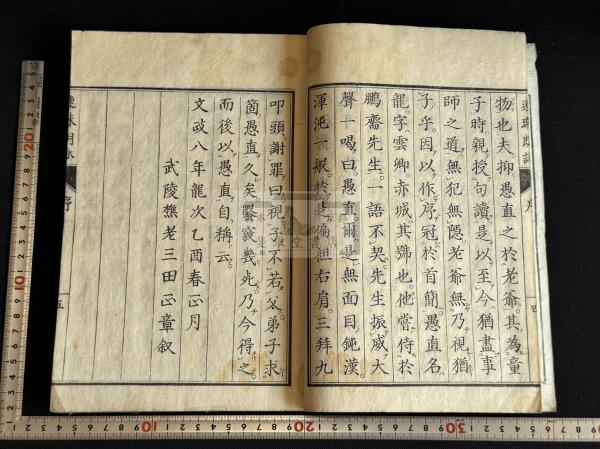 物也夫抑愚直之於老爺其為童
子時親授句讀是以至今猶盡事
師之道無犯無隱老爺無乃視猶
子乎因以作序冠於首簡愚直名
龍字雲卿赤城其號也他嘗侍於
鵬齋先生一語不契先生振威大
聲一喝曰愚直爾是無面目鈍漢
渾沌一竅於是偏袒右肩三拜九
叩頭謝罪曰視子不若父弟子求
箇愚直久矣
今得之
而後以愚直自稱云
文政八年龍次乙酉春正月
武陵樵老三田正章叙
序
五